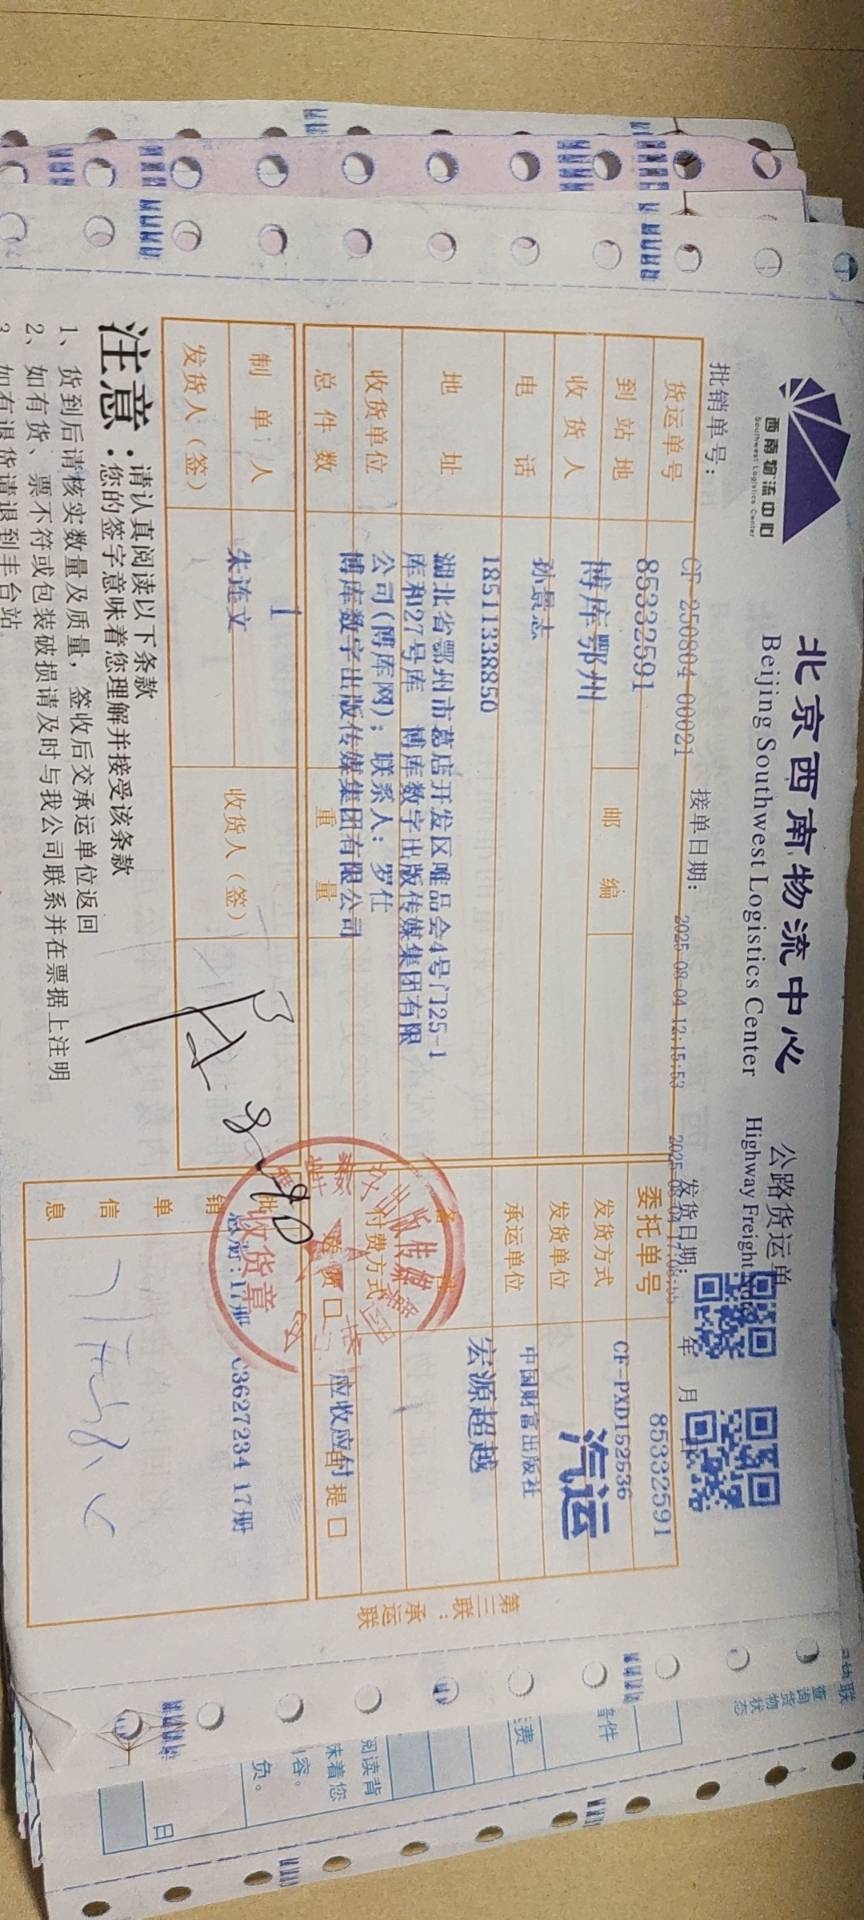 西南物流中心
Southwest Logistics Center
北京西南物流中心
Beijing Southwest Logistics Center
公路货运单
Highway Freight
批销单号：
CF-250804-00021
接单日期：
2025-08-04 12:15:53
发货日期：
年 月 日
货运单号
85332591
委托单号
85332591
到站地
博库鄂州
邮编
发货方式
CF-PXD152536
汽运
收货人
孙景志
发货单位
中国财富出版社
电话
18511338850
承运单位
宏源超越
地址
湖北省鄂州市葛店开发区唯品会4号门25-1
库和27号库 博库数字出版传媒集团有限
公司(博库网); 联系人: 罗仕
收货单位
博库数字出版传媒集团有限公司
付费方式
应收应付
自提口
总件数
1
重量
制单人
朱连文
收货人（签）
发货人（签）
批销单信息
总册:17册 C3627234 17册
出版传媒
收货章
第三联：承运联
注意：
请认真阅读以下条款
您的签字意味着您理解并接受该条款
1、货到后请核实数量及质量，签收后交承运单位返回
2、如有货、票不符或包装破损请及时与我公司联系并在票据上注明
3、如有退货请退到丰台站
查询货
物状态
备件
费
阅读背
味着您
容。
负。
日